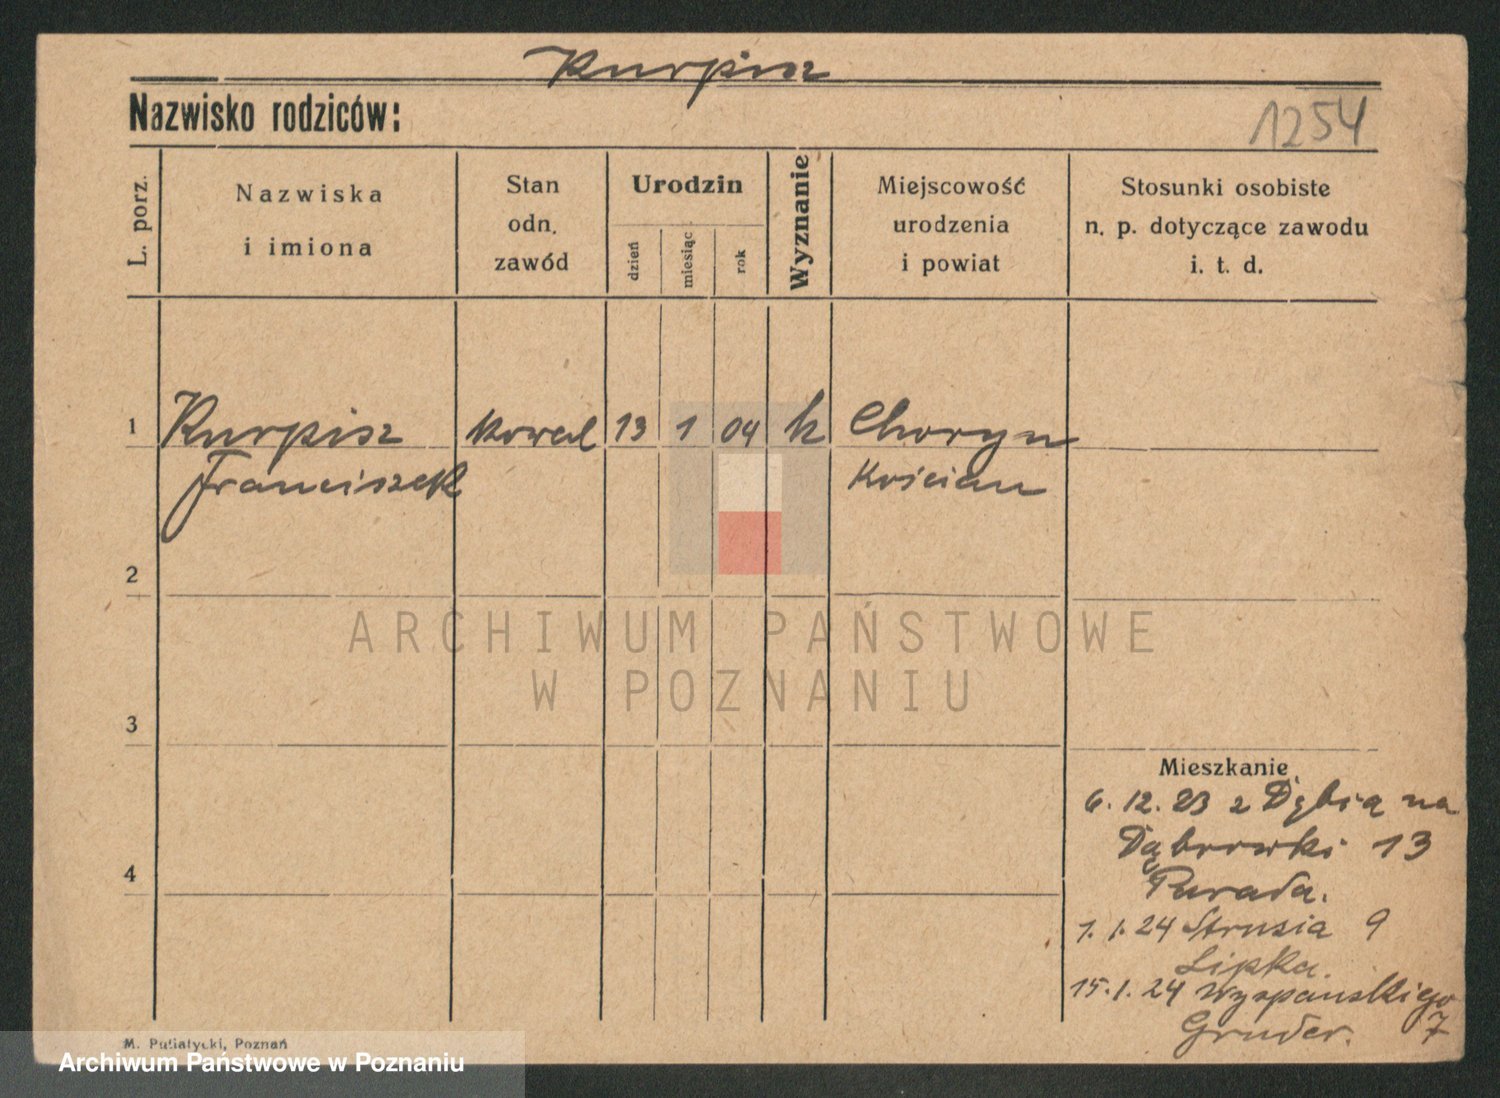 Kurpisz
Nazwisko rodziców:
1254
L. porz.
Nazwiska
i imiona
Stan
odn.
zawód
Urodzin
dzień
miesiąc
rok
Wyznanie
Miejscowość
urodzenia
i powiat
Stosunki osobiste
n. p. dotyczące zawodu
i. t. d.
1 Kurpisz kowal 13 1 04 k Choryn
Franciszek Kościan
2
ARCHIWUM PAŃSTWOWE
W POZNANIU
3
Mieszkanie
6. 12. 23 z Dębia na
Dąbrowki 13
4
1. 1. 24 Strusia 9
Lipka.
15. 1. 24 Wyspańskiego
Gruder. 7
M. Putiatycki, Poznań
Archiwum Państwowe w Poznaniu